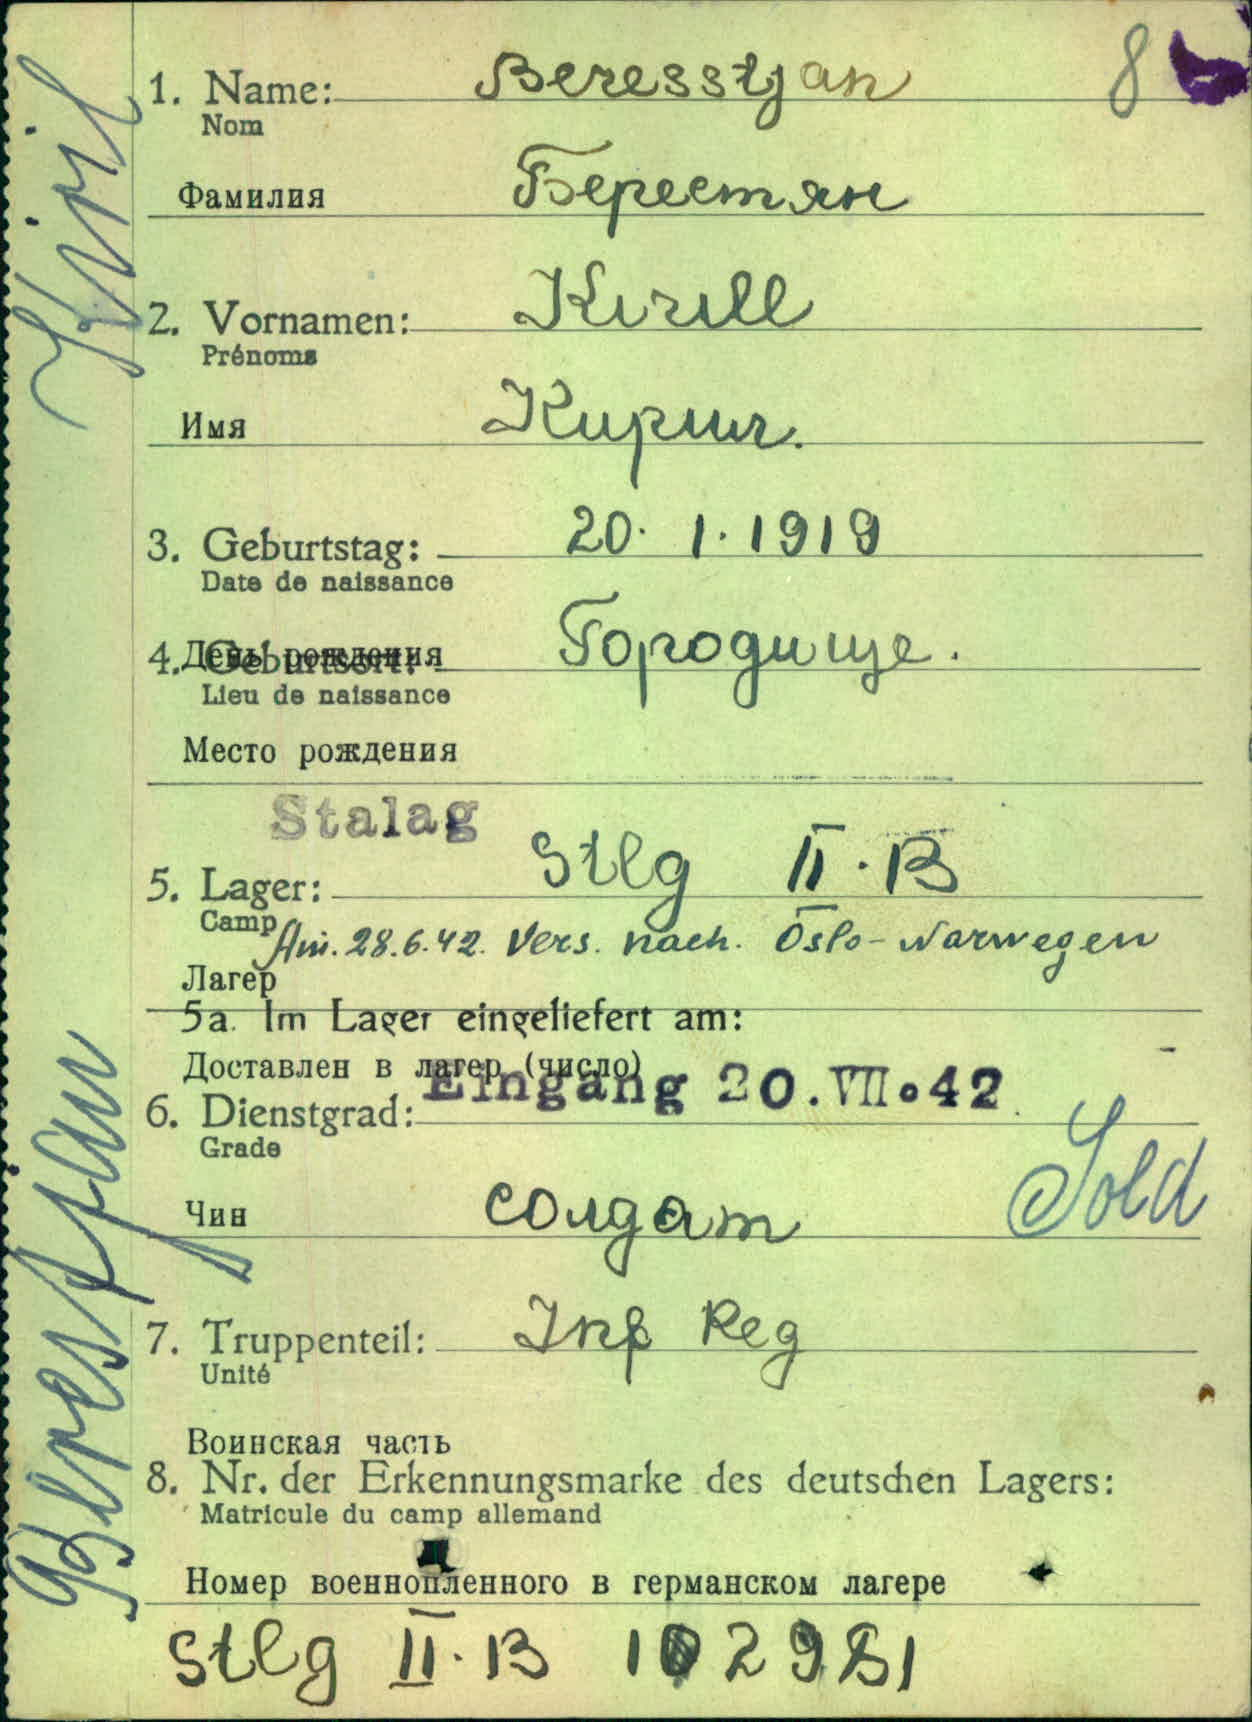 1. Name: Beresstjan 8
Nom
Фамилия Берестян
2. Vornamen: Kirill
Prénoms
Имя Кирил.
3. Geburtstag: 20. 1. 1919
Date de naissance
День рождения
4. Geburtsort: Городище.
Lieu de naissance
Место рождения
Stalag
5. Lager: Stlg II. B
Camp
Am. 28.6.42. Vers. nach. Oslo-Norwegen
Лагер
5a. Im Lager eingeliefert am:
Доставлен в лагер (число)
Eingang 20. VII. 42
6. Dienstgrad:
Grade
Чин солдат Sold
7. Truppenteil: Inf Reg
Unité
Воинская часть
8. Nr. der Erkennungsmarke des deutschen Lagers:
Matricule du camp allemand
Номер военнопленного в германском лагере
Stlg II. B
Kiril
Berestjan